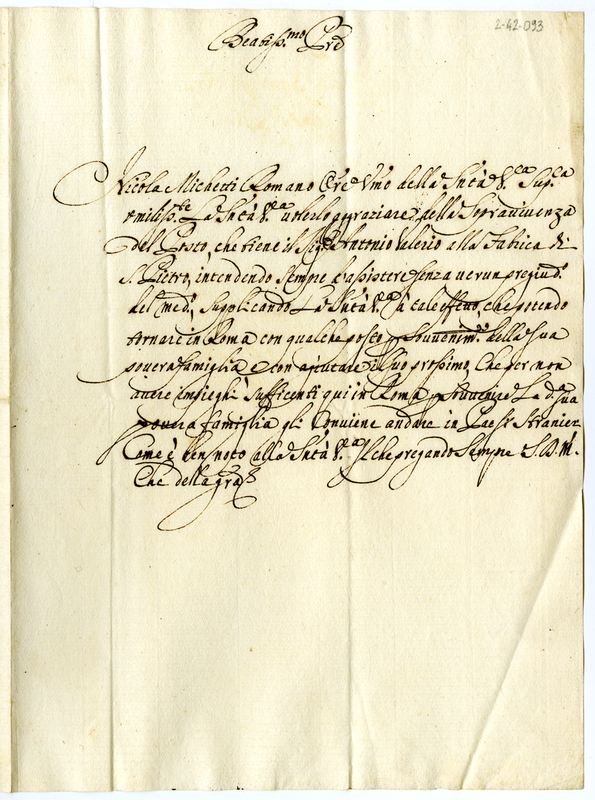 2-42-093
Beatiss.mo Pre
Nicola Michetti Romano Ore Vmo della Sntà V.ra Sup.ca
umiliss.te La Sntà V.ra volerlo aggraziare della Sopravivenza
del Posto, che tiene il Sig.r Antonio Valerio alla Fabica di
S. Pietro, intendendo Sempre d'assistere senza verun pregiud.
del med.o Supplicando La Sntà V.ra à tale effetto, che potendo
tornare in Roma con qualche posto p Sovvenim.to della sua
povera famiglia e con ajutare il Suo prossimo, Che per non
avere impieghi sufficenti qui in Roma p Sovvenire La d.a sua
povera famiglia gli Conviene andare in Paesi Stranieri
Come è ben noto alla Sntà V.ra Il che pregando Sempre S. D. M.
Che della gra